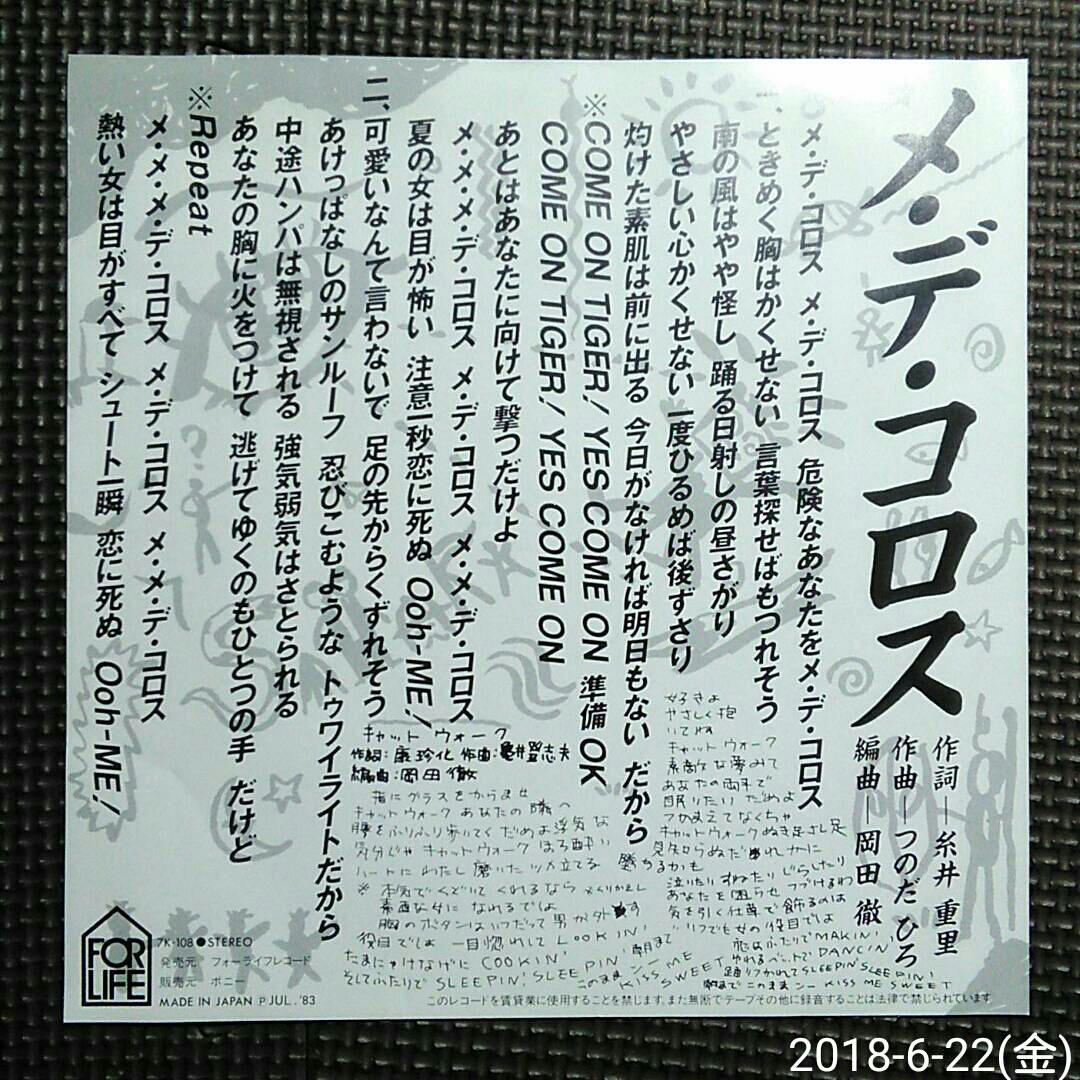 メ・デ・コロス
作詞―糸井重里
作曲―つのだひろ
編曲―岡田徹
メ・デ・コロス メ・デ・コロス 危険なあなたをメ・デ・コロス
一、ときめく胸はかくせない 言葉探せばもつれそう
南の風はやや怪し 踊る日射しの昼さがり
やさしい心かくせない 一度ひるめば後ずさり
灼けた素肌は前に出る 今日がなければ明日もない だから
※COME ON TIGER! YES COME ON 準備OK
COME ON TIGER! YES COME ON
あとはあなたに向けて撃つだけよ
メ・メ・メ・デ・コロス メ・デ・コロス メ・メ・デ・コロス
夏の女は目が怖い 注意一秒恋に死ぬ Ooh-ME!
二、可愛いなんて言わないで 足の先からくずれそう
あけっぱなしのサンルーフ 忍びこむような トワイライトだから
中途ハンパは無視される 強気弱気はさとられる
あなたの胸に火をつけて 逃げてゆくのもひとつの手 だけど
※Repeat
メ・メ・メ・デ・コロス メ・デ・コロス メ・メ・デ・コロス
熱い女は目がすべて シュート一瞬 恋に死ぬ Ooh-ME!
キャット ウォーク
作詞:康珍化 作曲:亀井登志夫
編曲:岡田徹
指にグラスをからませ
キャットウォーク あなたの隣へ
腰をふりふり歩いてく だめよ浮気な
気分じゃ キャットウォーク ほろ酔い
ハートに わたし 磨いた ツメ立てる
※ 本気でくどいて くれるなら
素直な女に なれるでしょ
胸のボタンは いつだって 男が外す
役目でしょ 一目惚れして LOOKIN'
たまにゃけなげに COOKIN'
そしてふたりで SLEEPIN' SLEEPIN' このまま ンー KISS ME SWEET
好きよ
やさしく抱
いてね
キャット ウォーク
素敵な夢みて
あなたの両手で
眠りたい だめよ
つかまえてなくちゃ
キャットウォーク ぬき足さし足
見知らぬだれかに
堕ちるかも
泣いたり すねたり じらしたり
あなたを困らせ つづけるわ
気を引く仕草で飾るのは
いつでも女の役目でしょ
恋はふたりで MAKIN'
ゆれるベットで DANCIN'
踊りつかれて SLEEPIN' SLEEPIN'
朝まで このまま ンー KISS ME SWEET
FOR LIFE
7K-108 ● STEREO
発売元 フォーライフレコード
販売元 ポニー
MADE IN JAPAN Ⓟ JUL. '83
このレコードを賃貸業に使用することを禁じます。また無断でテープその他に録音することは法律で禁じられています
2018-6-22(金)